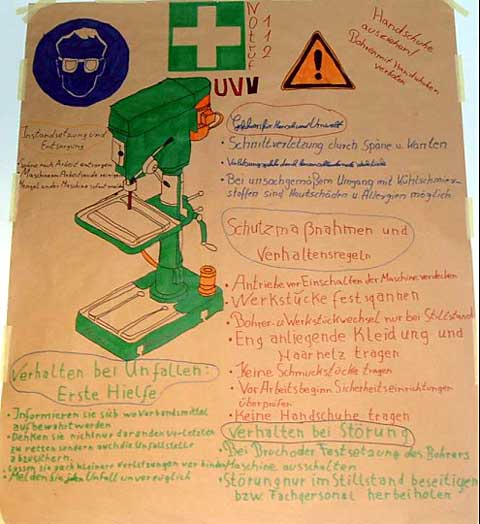 Notruf
112
UVV
Handschuhe
ausziehen!
Bohren mit Handschuhen
verboten
Instandsetzung und
Entsorgung
• Späne nach Arbeit entsorgen
• Maschine am Arbeitsende reinigen
• Mängel an der Maschine sofort melden
Gefahren für Mensch und Umwelt
• Schnittverletzung durch Späne u. Kanten
• Verletzungsgefahr durch
• Bei unsachgemäßem Umgang mit Kühlschmier-
stoffen sind Hautschäden u. Allergien möglich
Schutzmaßnahmen und
Verhaltensregeln
• Antriebe vor Einschalten der Maschine verdecken
• Werkstücke festspannen
• Bohrer- u. Werkstückwechsel nur bei Stillstand
• Eng anliegende Kleidung und
Haarnetz tragen
• Keine Schmuckstücke tragen
• Vor Arbeitsbeginn Sicherheitseinrichtungen
überprüfen
• Keine Handschuhe tragen
Verhalten bei Unfallen:
Erste Hielfe
• Informieren sie sich wo Verbandsmittel
aufbewahrt werden
• Denken sie nicht nur daran den verletzten
zu retten sondern auch die Unfallstelle
abzusichern.
Lassen sie auch kleinere Verletzungen verbinden
• Melden Sie jeden Unfall unverzüglich
Verhalten bei Störung
• Bei Bruch oder Festsetzung des Bohrers
Maschine ausschalten
• Störung nur im Stillstand beseitigen
bzw. Fachpersonal herbeiholen